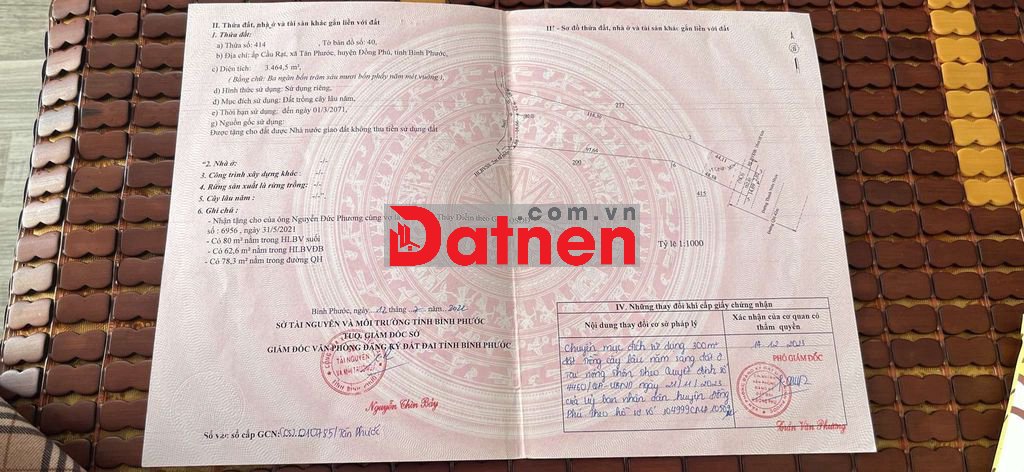 II. Thửa đất, nhà ở và tài sản khác gắn liền với đất
1. Thửa đất:
a) Thửa số: 414 Tờ bản đồ số: 40,
b) Địa chỉ: ấp Cầu Rạt, xã Tân Phước, huyện Đồng Phú, tỉnh Bình Phước,
c) Diện tích: 3.464,5 m²,
( Bằng chữ: Ba ngàn bốn trăm sáu mươi bốn phẩy năm mét vuông ),
d) Hình thức sử dụng: Sử dụng riêng,
đ) Mục đích sử dụng: Đất trồng cây lâu năm,
e) Thời hạn sử dụng: đến ngày 01/3/2071,
g) Nguồn gốc sử dụng:
Được tặng cho đất được Nhà nước giao đất không thu tiền sử dụng đất
*2. Nhà ở: -/-
3. Công trình xây dựng khác : -/-
4. Rừng sản xuất là rừng trồng: -/-
5. Cây lâu năm: -/-
6. Ghi chú :
- Nhận tặng cho của ông Nguyễn Đức Phương cùng vợ là Thủy Diễm theo
số : 6956 , ngày 31/5/2021
- Có 80 m² nằm trong HLBV suối
- Có 62,6 m² nằm trong HLBVĐB
- Có 78,3 m² nằm trong đường QH
Bình Phước, ngày 12 tháng 2 năm 2022
SỞ TÀI NGUYÊN VÀ MÔI TRƯỜNG TỈNH BÌNH PHƯỚC
TUQ. GIÁM ĐỐC SỞ
GIÁM ĐỐC VĂN PHÒNG ĐĂNG KÝ ĐẤT ĐAI TỈNH BÌNH PHƯỚC
TÀI NGUYÊN
VÀ MÔI TRƯỜNG
TỈNH BÌNH PHƯỚC
Nguyễn Chín Bảy
Số vào sổ cấp GCN: /Tân Phước
III - Sơ đồ thửa đất, nhà ở và tài sản khác gắn liền với đất
277
116.50
97.66
209
415
44.11
Tỷ lệ 1:1000
.com.vn
Datnen
IV. Những thay đổi khi cấp giấy chứng nhận
Nội dung thay đổi cơ sở pháp lý
Xác nhận của cơ quan có
thẩm quyền
Chuyển mục đích sử dụng 300m²
đất trồng cây lâu năm sang đất ở
tại nông thôn theo Quyết định số
4460/QĐ-UBND ngày 21/11/2023
của Ủy ban nhân dân huyện Đồng
Phú theo hồ sơ số
14.12.2023
PHÓ GIÁM ĐỐC
Trần Văn Phương